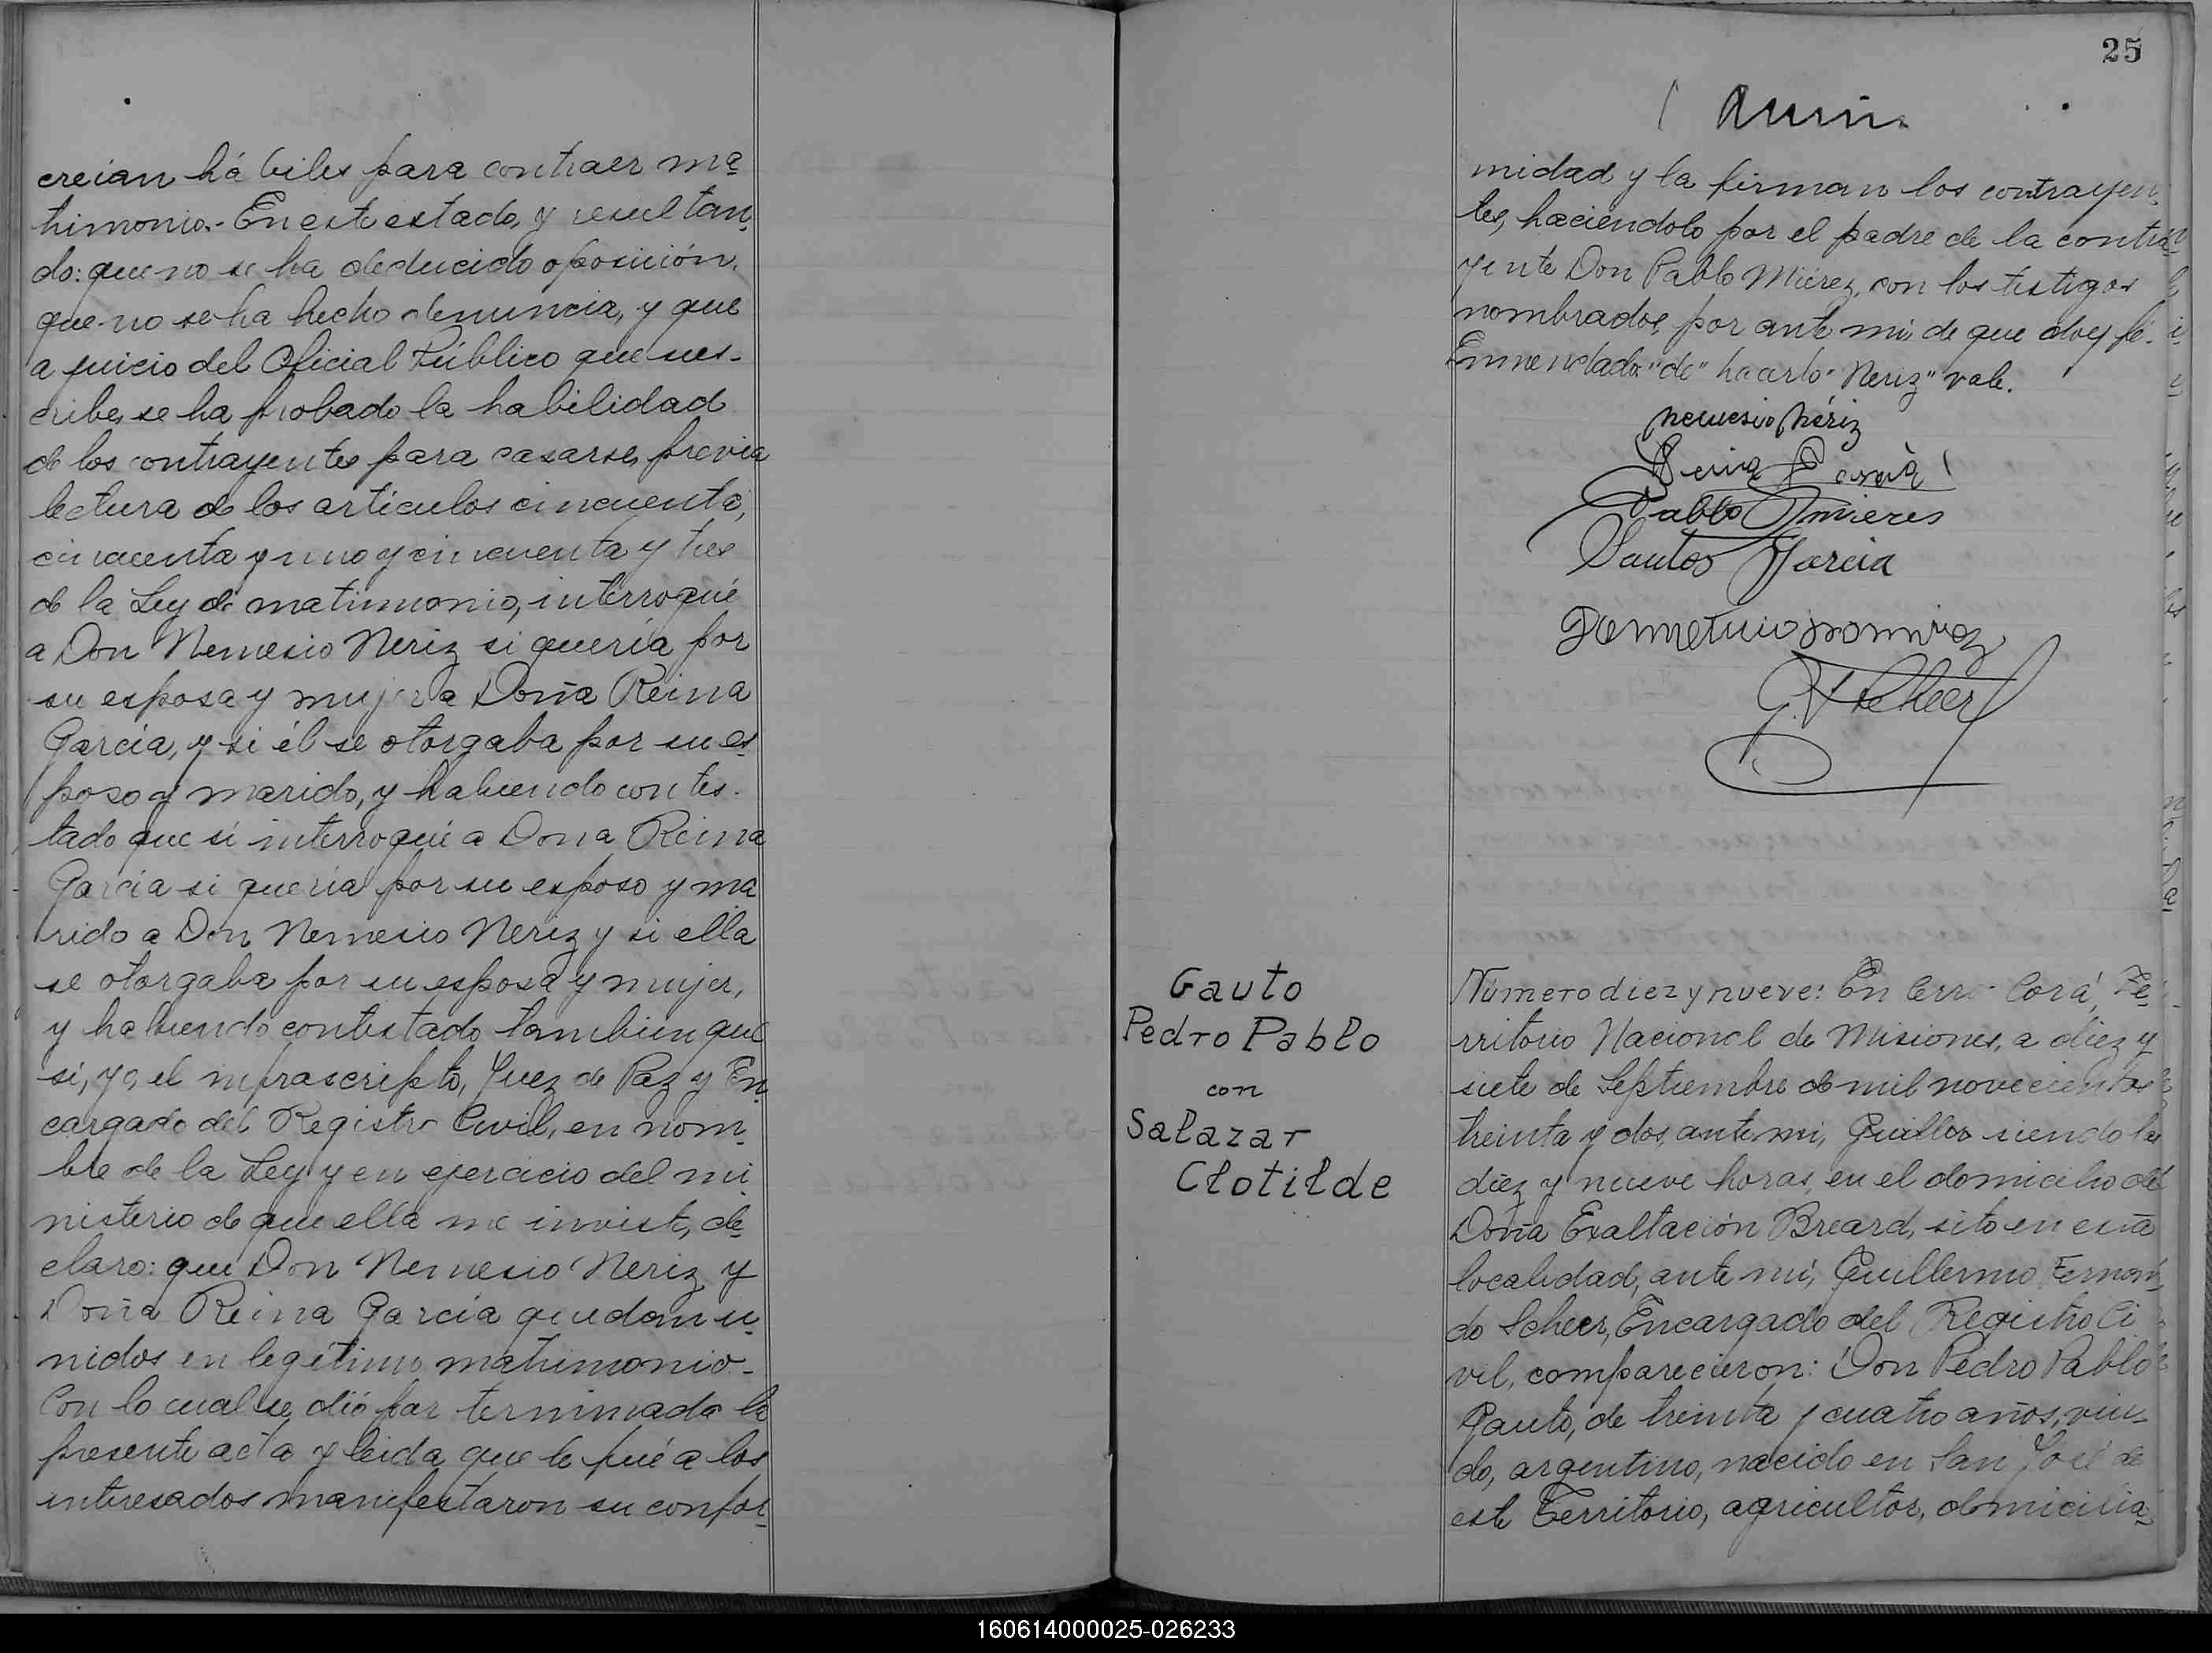 creían hábiles para contraer ma
trimonio.- En este estado, y resultan
do: que no se ha deducido oposición,
que no se ha hecho denuncia, y que
a juicio del Oficial Público que sus-
cribe, se ha probado la habilidad
de los contrayentes para casarse, previa
lectura de los artículos cincuenta,
cincuenta y uno y cincuenta y tres
de la Ley de matrimonio, interrogué
a Don Nemesio Neriz si quería por
su esposa y mujer a Doña Reina
García, y si él se otorgaba por su es
poso y marido, y habiendo contes-
tado que sí interrogué a Doña Reina
García si quería por su esposo y ma
rido a Don Nemesio Neriz y si ella
se otorgaba por su esposa y mujer,
y habiendo contestado tambien que
sí, yo, el infrascripto, Juez de Paz y En
cargado del Registro Civil, en nom
bre de la Ley y en ejercicio del mi
nisterio de que ella me inviste, de
claro: que Don Nemesio Neriz y
Doña Reina García quedan u
nidos en legítimo matrimonio.-
Con lo cual se dió por terminada la
presente acta y leida que le fué a los
interesados manifestaron su confor
25
midad y la firman los contrayen
tes, haciéndolo por el padre de la contra
yente Don Pablo Miérez, con los testigos
nombrados, por ante mí, de que doy fé.-
Enmendado: "de" hacerlo "Neriz" vale.
Nemesio Nériz
Reina García
Pablo Mieres
Santos Garcia
G. F. Scheer
Gauto
Pedro Pablo
con
Salazar
Clotilde
Número diez y nueve: En Cerro Corá, Te
rritorio Nacional de Misiones, a diez y
siete de Septiembre de mil novecientos
treinta y dos, ante mi, Guiller siendo las
diez y nueve horas, en el domicilio de
Doña Exaltación Breard, sito en esta
localidad, ante mi, Guillermo Fernan
do Scheer, Encargado del Registro Ci
vil, comparecieron: Don Pedro Pablo
Gauto, de treinta y cuatro años, viu-
do, argentino, nacido en San José de
este Territorio, agricultor, domicilia
160614000025-026233